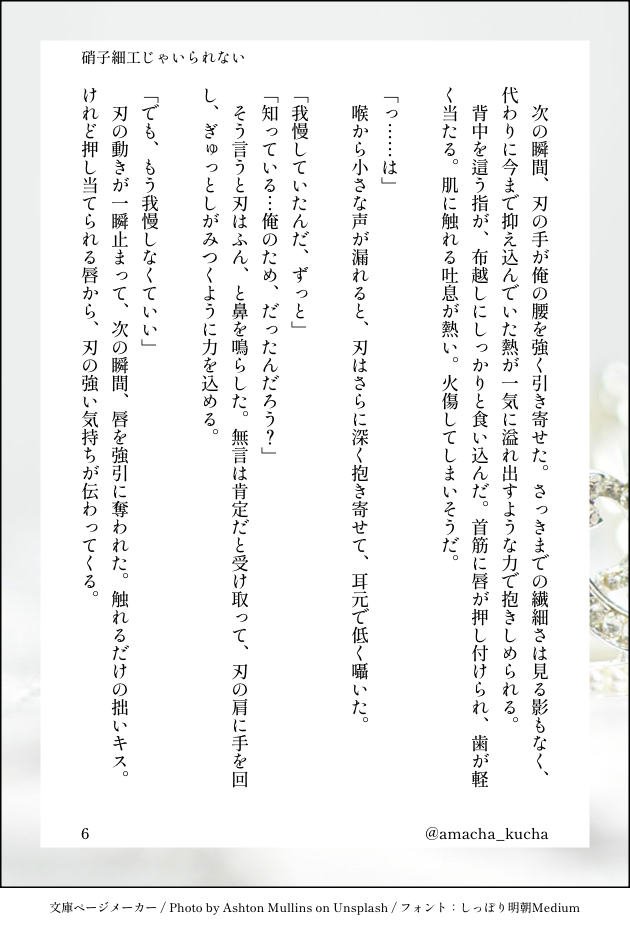 硝子細工じゃいられない
次の瞬間、刃の手が俺の腰を強く引き寄せた。さっきまでの繊細さは見る影もなく、
代わりに今まで抑え込んでいた熱が一気に溢れ出すような力で抱きしめられる。
背中を這う指が、布越しにしっかりと食い込んだ。首筋に唇が押し付けられ、歯が軽
く当たる。肌に触れる吐息が熱い。火傷してしまいそうだ。
「っ……は」
喉から小さな声が漏れると、刃はさらに深く抱き寄せて、耳元で低く囁いた。
「我慢していたんだ、ずっと」
「知っている…俺のため、だったんだろう？」
そう言うと刃はふん、と鼻を鳴らした。無言は肯定だと受け取って、刃の肩に手を回
し、ぎゅっとしがみつくように力を込める。
「でも、もう我慢しなくていい」
刃の動きが一瞬止まって、次の瞬間、唇を強引に奪われた。触れるだけの拙いキス。
けれど押し当てられる唇から、刃の強い気持ちが伝わってくる。
6
@amacha_kucha
文庫ページメーカー / Photo by Ashton Mullins on Unsplash / フォント：しっぽり明朝Medium